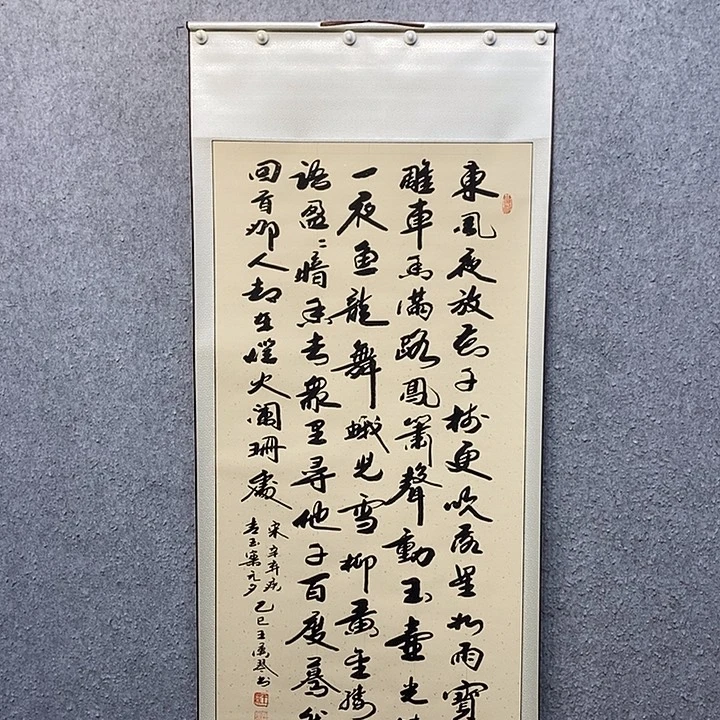 東風夜放花千樹更吹落星如雨寶
雕車馬滿路鳳簫聲動玉壺光
一夜魚龍舞蛾兒雪柳黃金縷
語盈盈暗香去衆里尋他千百度驀
回首那人却在燈火阑珊處
宋辛弃疾
青玉案元夕乙巳王